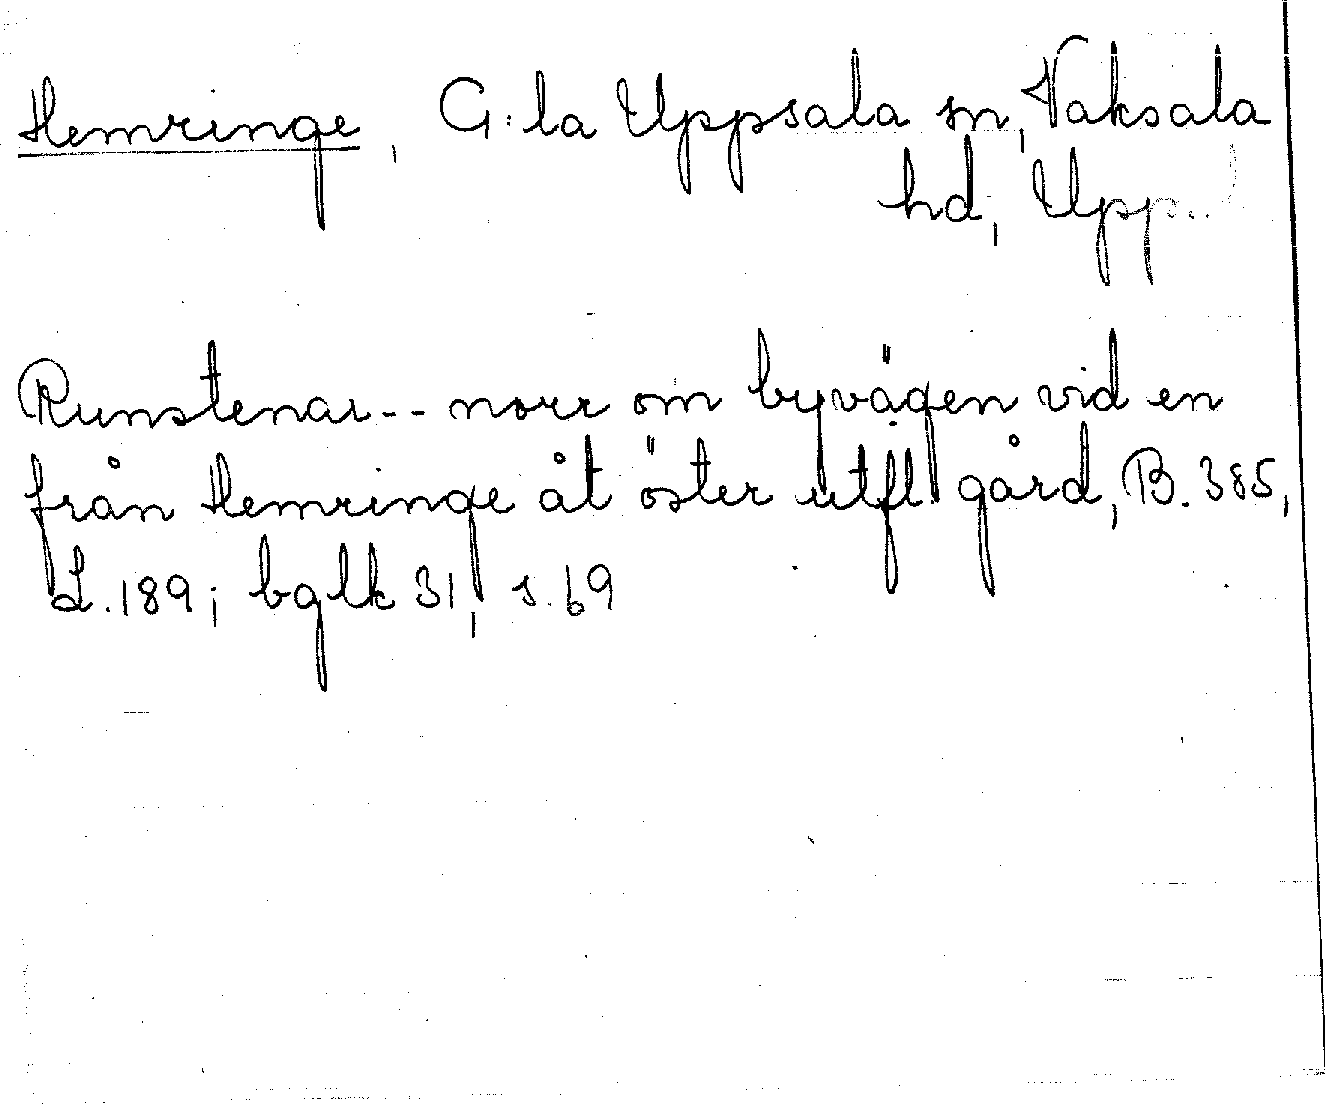 Hemringe, G:la Uppsala sn, Vaksala
hd, Upp..
Runstenar -- norr om byvägen vid en
från Hemringe åt öster utfl. gård, B. 385,
L. 189; bglk 31, s. 69